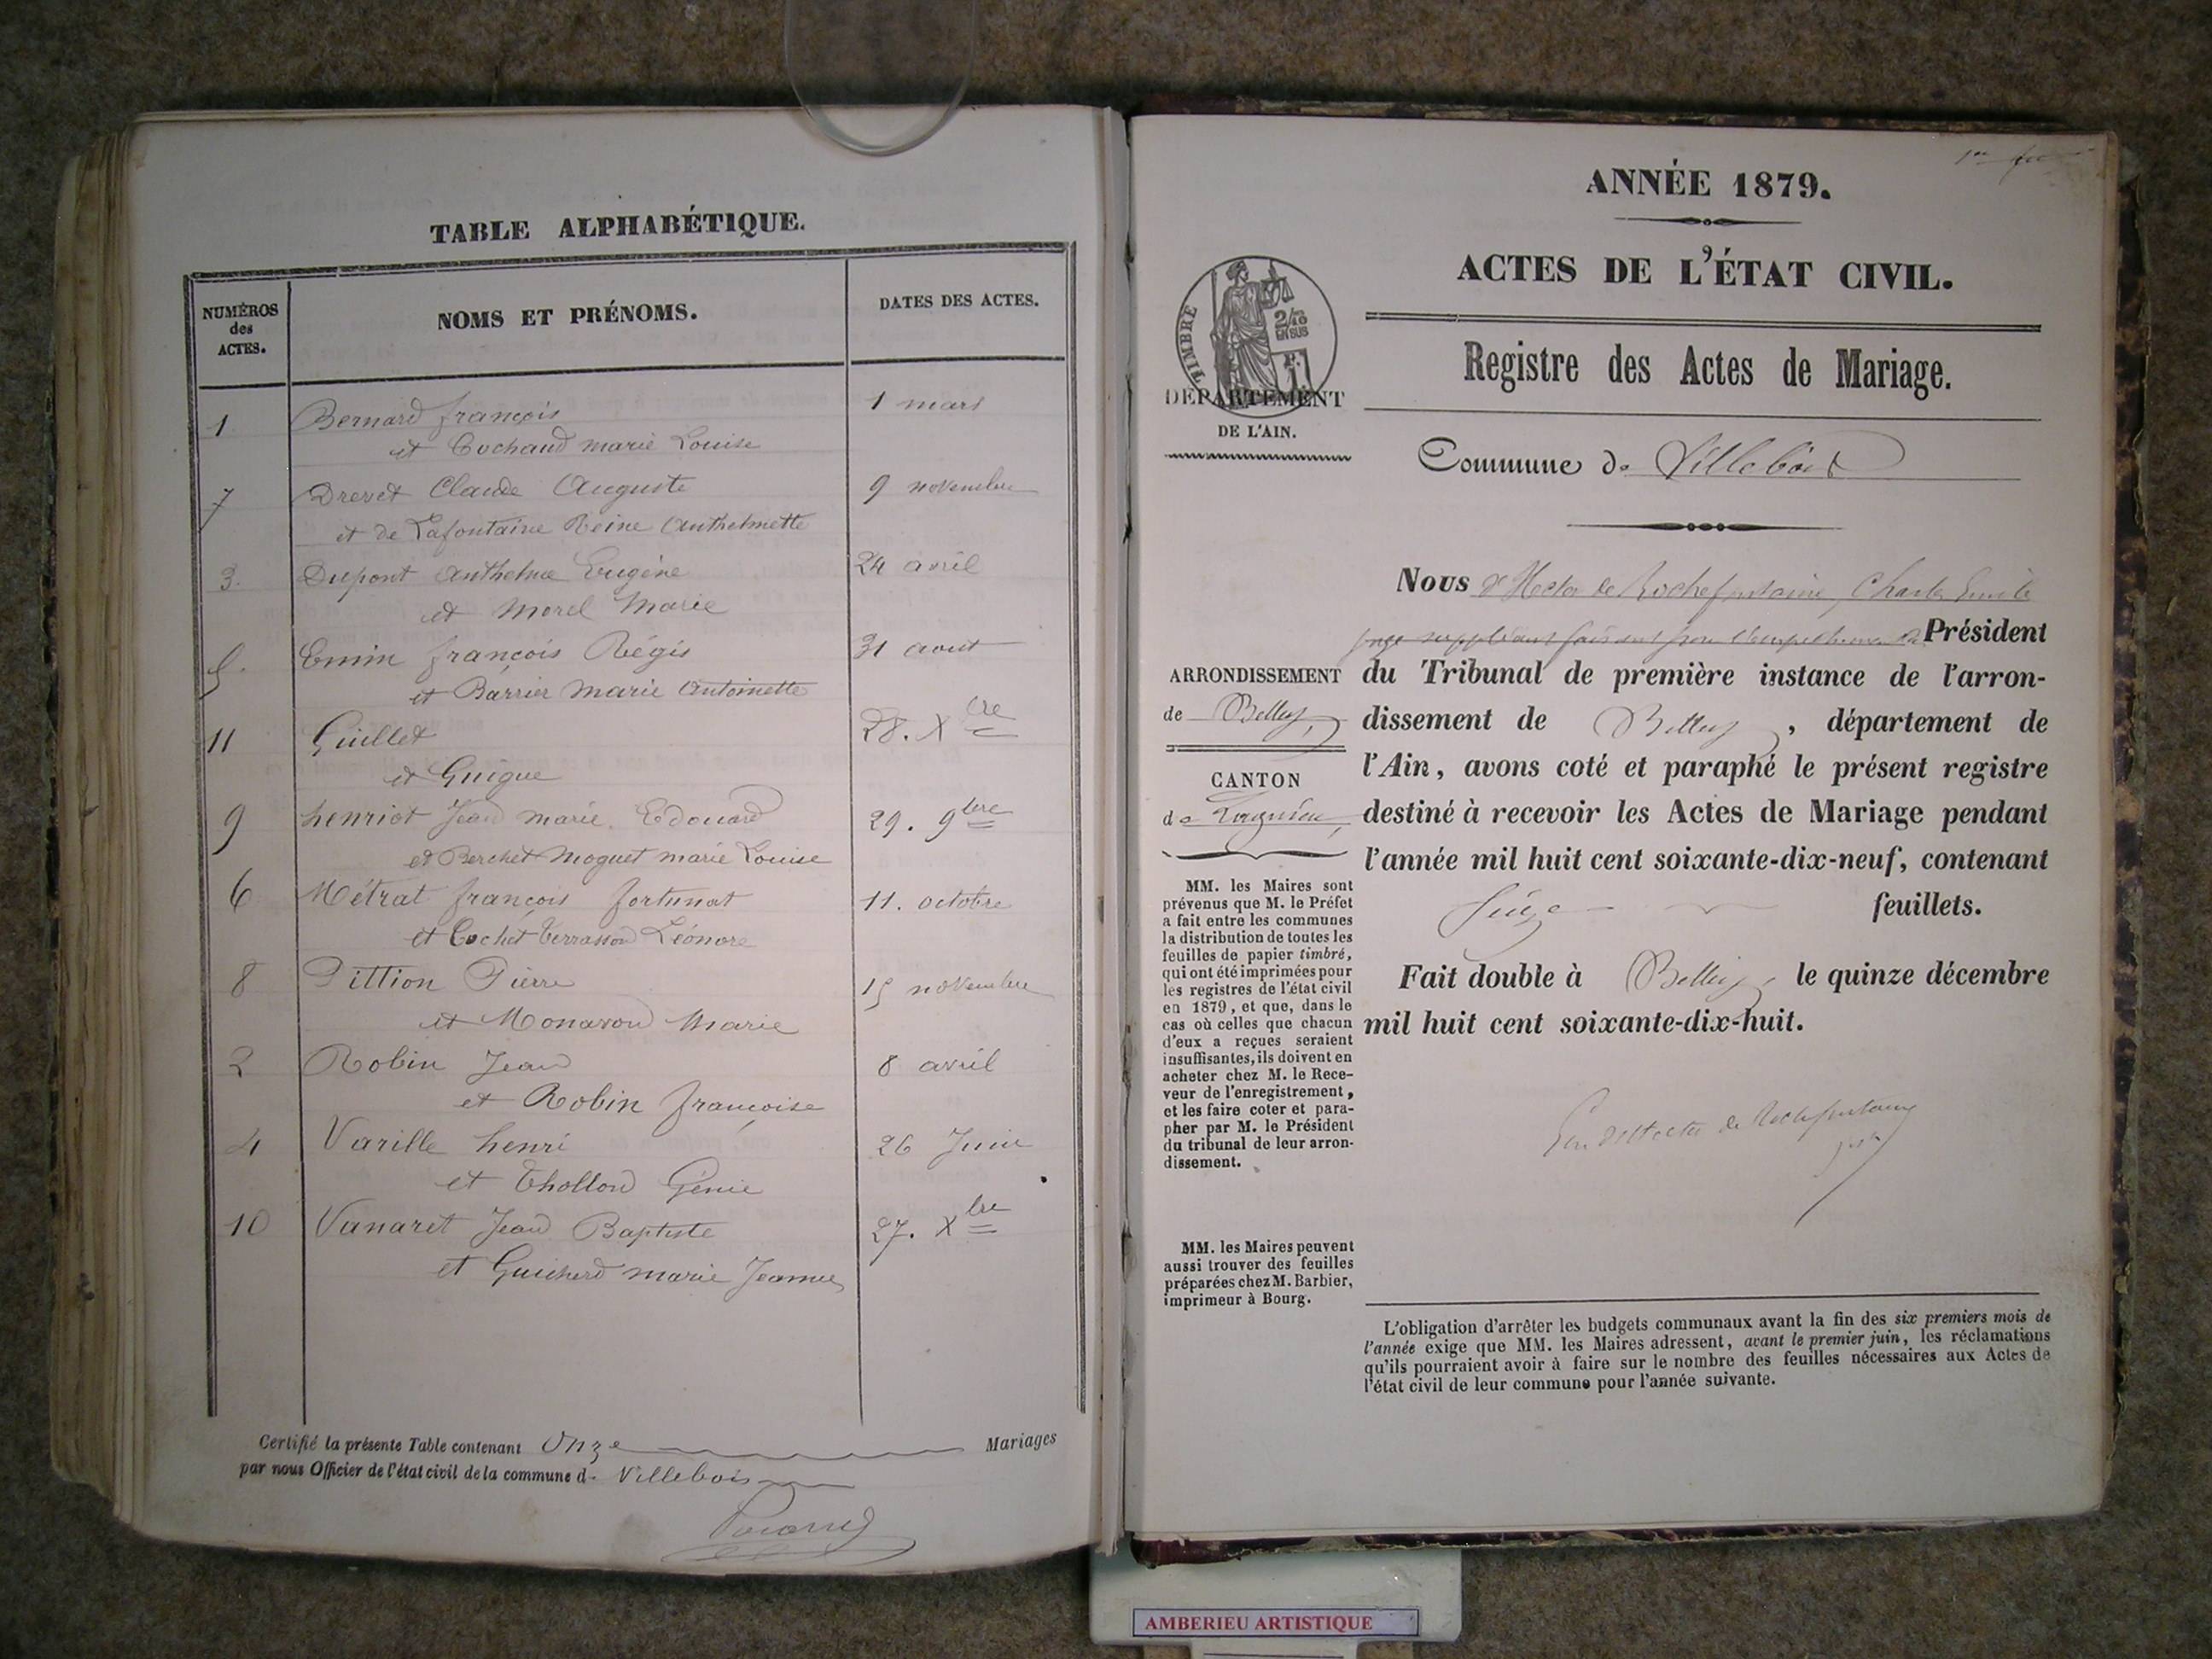 TABLE ALPHABÉTIQUE.
NUMÉROS des ACTES.
NOMS ET PRÉNOMS.
DATES DES ACTES.
1 Bernard françois 1 mars
et Cochaud marie Louise
7 Drevet Claude Auguste 9 novembre
et de Lafontaine Reine Anthelmette
3. Dupont Anthelme Eugène 24 avril
et Morel Marie
5. Emin françois Régis 31 aout
et Barrier Marie Antoinette
11 Guillet 28. Xbre
et Guigue
9 henriot Jean marie Edouard 29. 9bre
et Berchet Moguet marie Louise
6 Métrat françois fortunat 11. octobre
et Cochet Terrasson Léonore
8 Pittion Pierre 15 novembre
et Monavon Marie
2 Robin Jean 8 avril
et Robin françoise
4 Varille henri 26 Juin
et Thollon Génie
10 Vanaret Jean Baptiste 27. Xbre
et Guicherd marie Jeanne
Certifié la présente Table contenant Onze Mariages
par nous Officier de l'état civil de la commune de Villebois
ANNÉE 1879.
ACTES DE L'ÉTAT CIVIL.
Registre des Actes de Mariage.
TIMBRE
2/10 EN SUS
DÉPARTEMENT
DE L'AIN.
Commune de Villebois
Nous d'Hector de Rochefontaine, Charles Emile
juge suppléant faisant pour l'empêchement du Président
du Tribunal de première instance de l'arron-
dissement de Belley, département de
l'Ain, avons coté et paraphé le présent registre
destiné à recevoir les Actes de Mariage pendant
l'année mil huit cent soixante-dix-neuf, contenant
feuillets.
Fait double à Belley, le quinze décembre
mil huit cent soixante-dix-huit.
de Rochefontaine
ARRONDISSEMENT
de Belley,
CANTON
de Lagnieu,
MM. les Maires sont
prévenus que M. le Préfet
a fait entre les communes
la distribution de toutes les
feuilles de papier timbré,
qui ont été imprimées pour
les registres de l'état civil
en 1879, et que, dans le
cas où celles que chacun
d'eux a reçues seraient
insuffisantes, ils doivent en
acheter chez M. le Rece-
veur de l'enregistrement,
et les faire coter et para-
pher par M. le Président
du tribunal de leur arron-
dissement.
MM. les Maires peuvent
aussi trouver des feuilles
préparées chez M. Barbier,
imprimeur à Bourg.
L'obligation d'arrêter les budgets communaux avant la fin des six premiers mois de
l'année exige que MM. les Maires adressent, avant le premier juin, les réclamations
qu'ils pourraient avoir à faire sur le nombre des feuilles nécessaires aux Actes de
l'état civil de leur commune pour l'année suivante.
AMBERIEU ARTISTIQUE